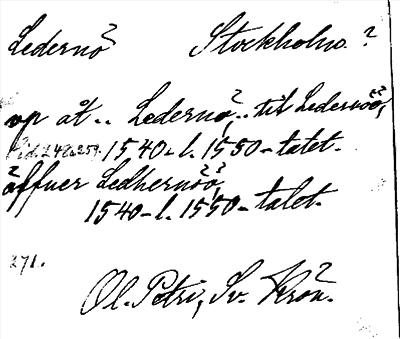 Ledernö Stockholms?
vp åt .. Ledernö, .. til Ledernöö,
Sid. 248 o. 257. 1540- l. 1550-talet.
åffuer Ledhernöö,
1540- l. 1550-talet.
271.
Ol. Petri, Sv. Krön.